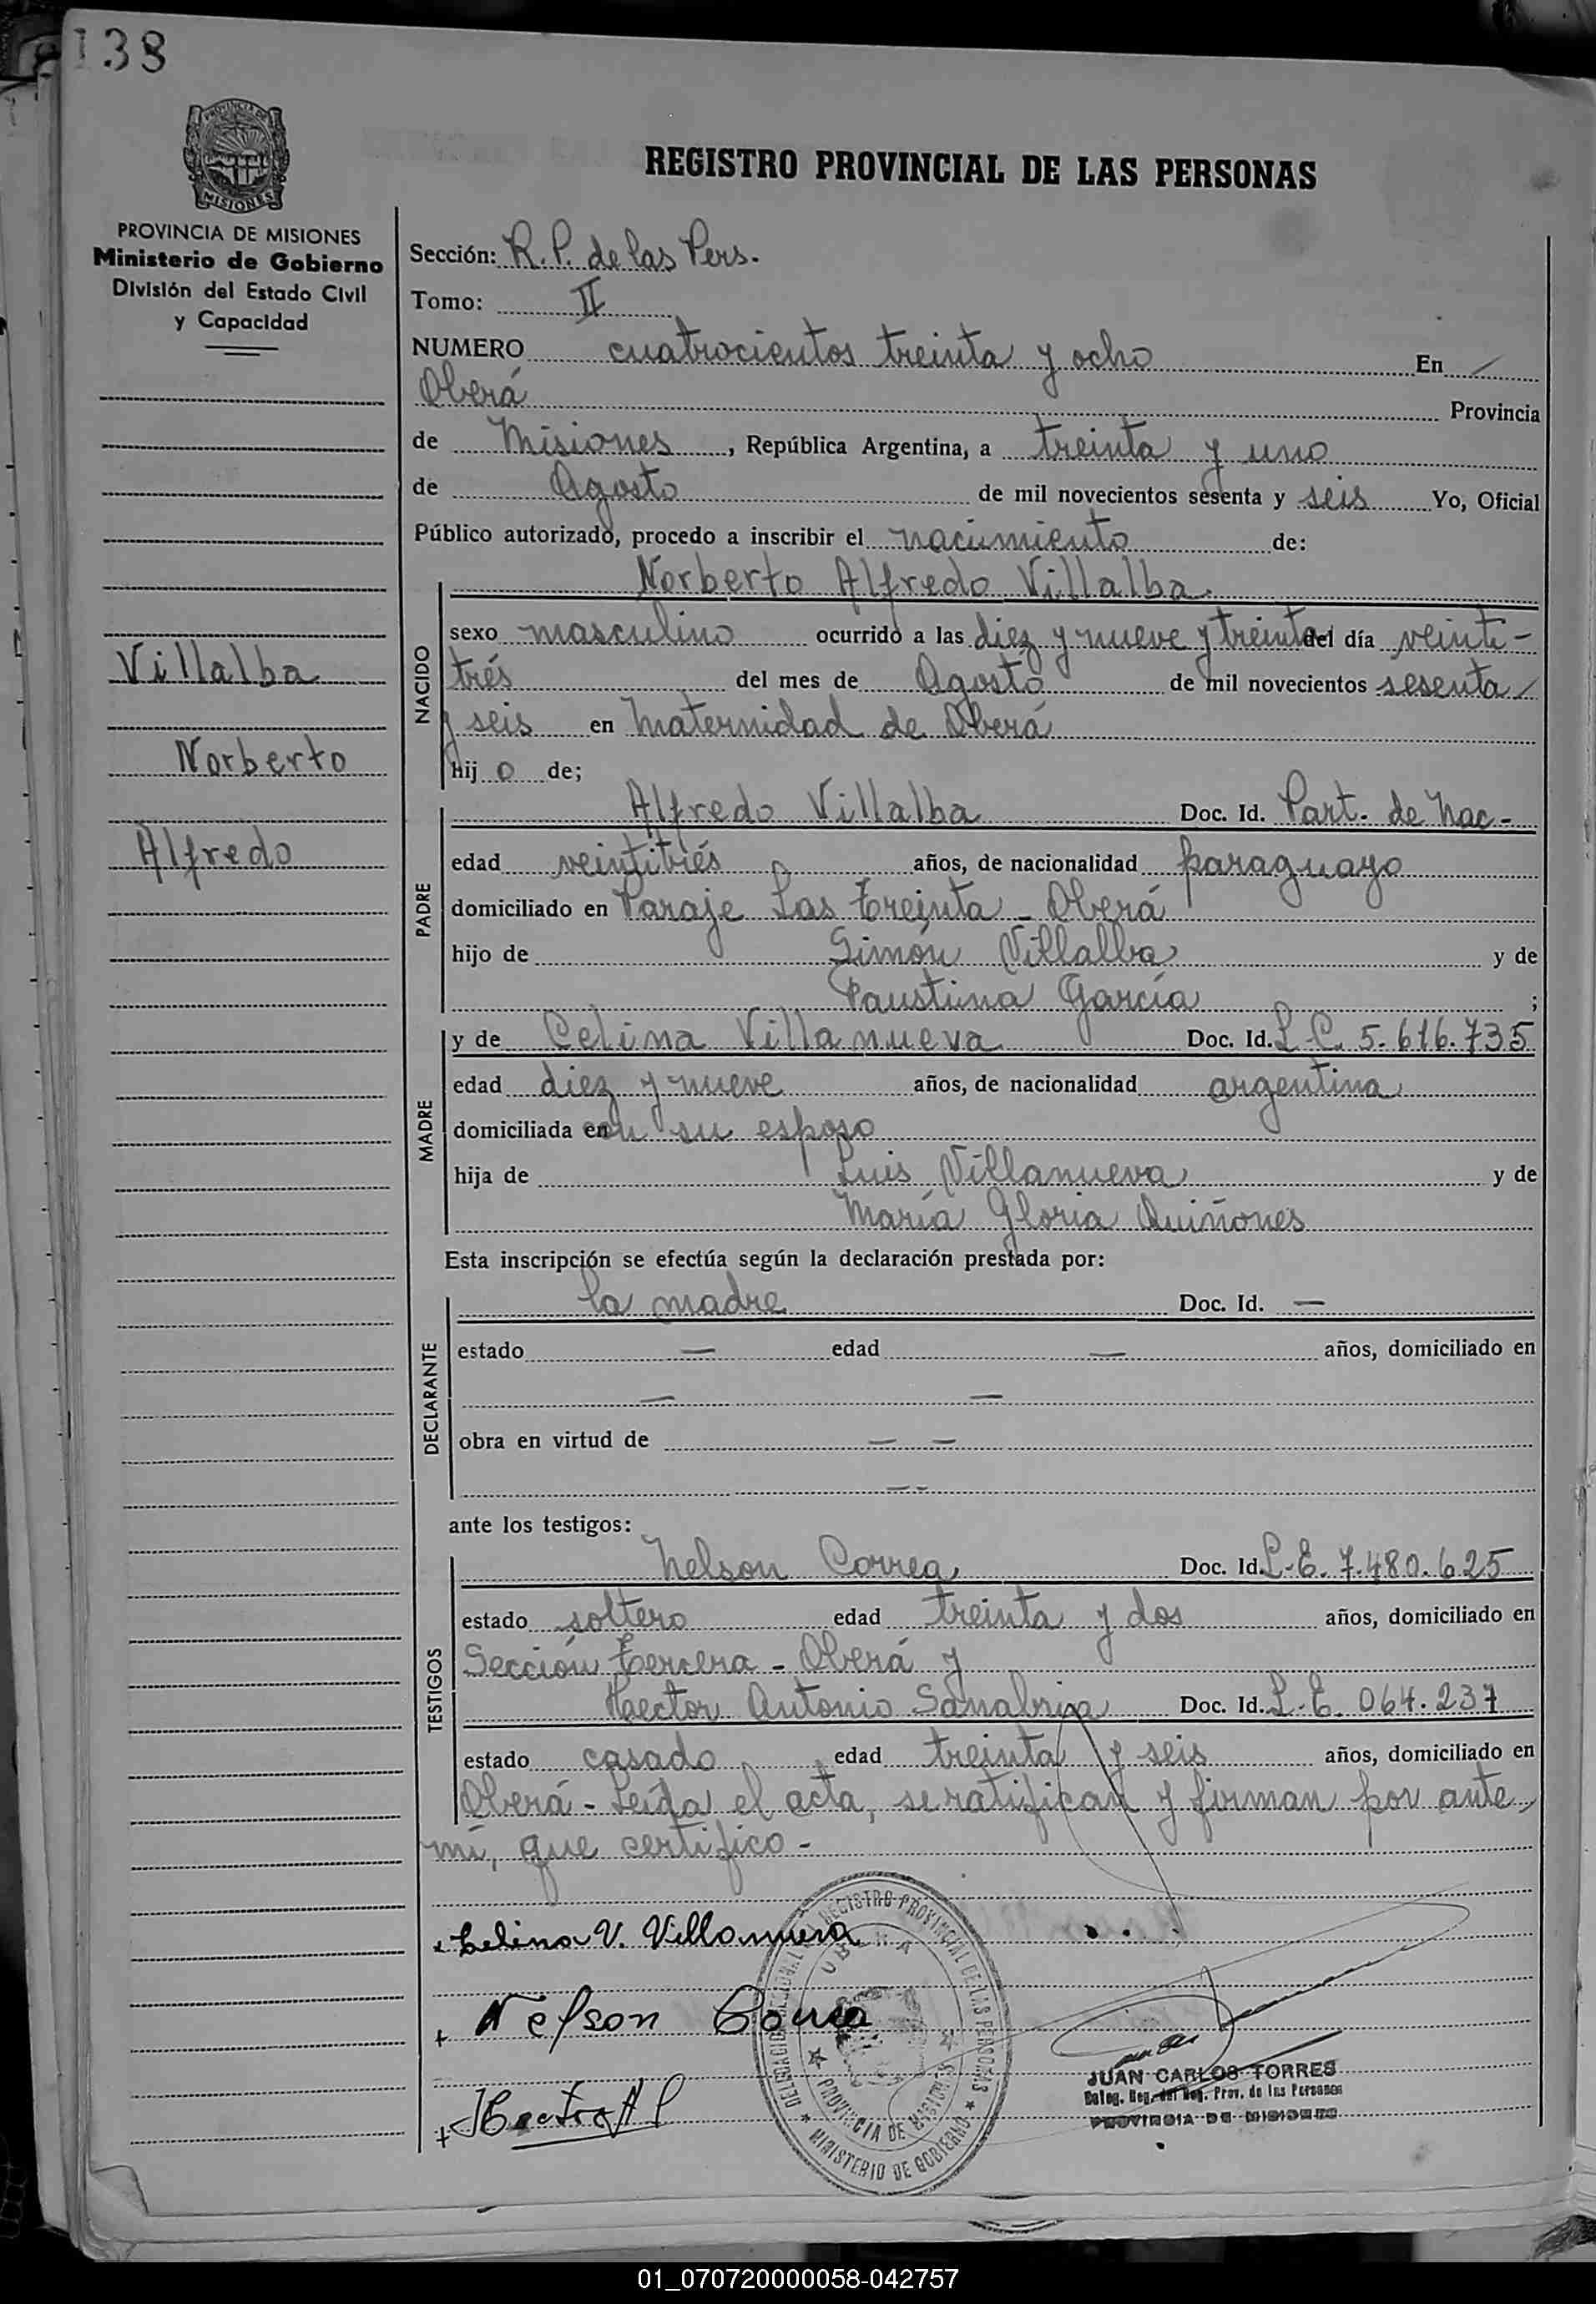 138
PROVINCIA DE MISIONES
PROVINCIA DE MISIONES
Ministerio de Gobierno
División del Estado Civil
y Capacidad
REGISTRO PROVINCIAL DE LAS PERSONAS
Sección: R. P. de las Pers.
Tomo: II
NUMERO cuatrocientos treinta y ocho En
Oberá Provincia
de Misiones, República Argentina, a treinta y uno
de Agosto de mil novecientos sesenta y seis Yo, Oficial
Público autorizado, procedo a inscribir el nacimiento de:
Norberto Alfredo Villalba
NACIDO
sexo masculino ocurrido a las diez y nueve y treinta del día veinti-
trés del mes de Agosto de mil novecientos sesenta
y seis en Maternidad de Oberá
hij o de;
Villalba
Norberto
Alfredo
PADRE
Alfredo Villalba Doc. Id. Part. de Nac-
edad veintitrés años, de nacionalidad paraguayo
domiciliado en Paraje Las Treinta - Oberá
hijo de Simón Villalba y de
Faustina García ;
MADRE
y de Celina Villanueva Doc. Id. L.C. 5.616.735
edad diez y nueve años, de nacionalidad argentina
domiciliada en con su esposo
hija de Luis Villanueva y de
María Gloria Quiñones
Esta inscripción se efectúa según la declaración prestada por:
DECLARANTE
la madre Doc. Id. —
estado — edad — años, domiciliado en
— —
obra en virtud de — —
- -
ante los testigos:
TESTIGOS
Nelson Correa Doc. Id. L.E. 7.480.625
estado soltero edad treinta y dos años, domiciliado en
Sección Tercera - Oberá y
Hector Antonio Sanabria Doc. Id. L.E. 064.237
estado casado edad treinta y seis años, domiciliado en
Oberá - Leída el acta, se ratifican y firman por ante
mí, que certifico -
Celina V. Villanueva
Nelson Correa
DELEGACION REGIONAL DEL REGISTRO PROVINCIAL DE LAS PERSONAS
OBERA
PROVINCIA DE MISIONES
MINISTERIO DE GOBIERNO
JUAN CARLOS TORRES
Deleg. Reg. del Reg. Prov. de las Personas
PROVINCIA DE MISIONES
01_070720000058-042757